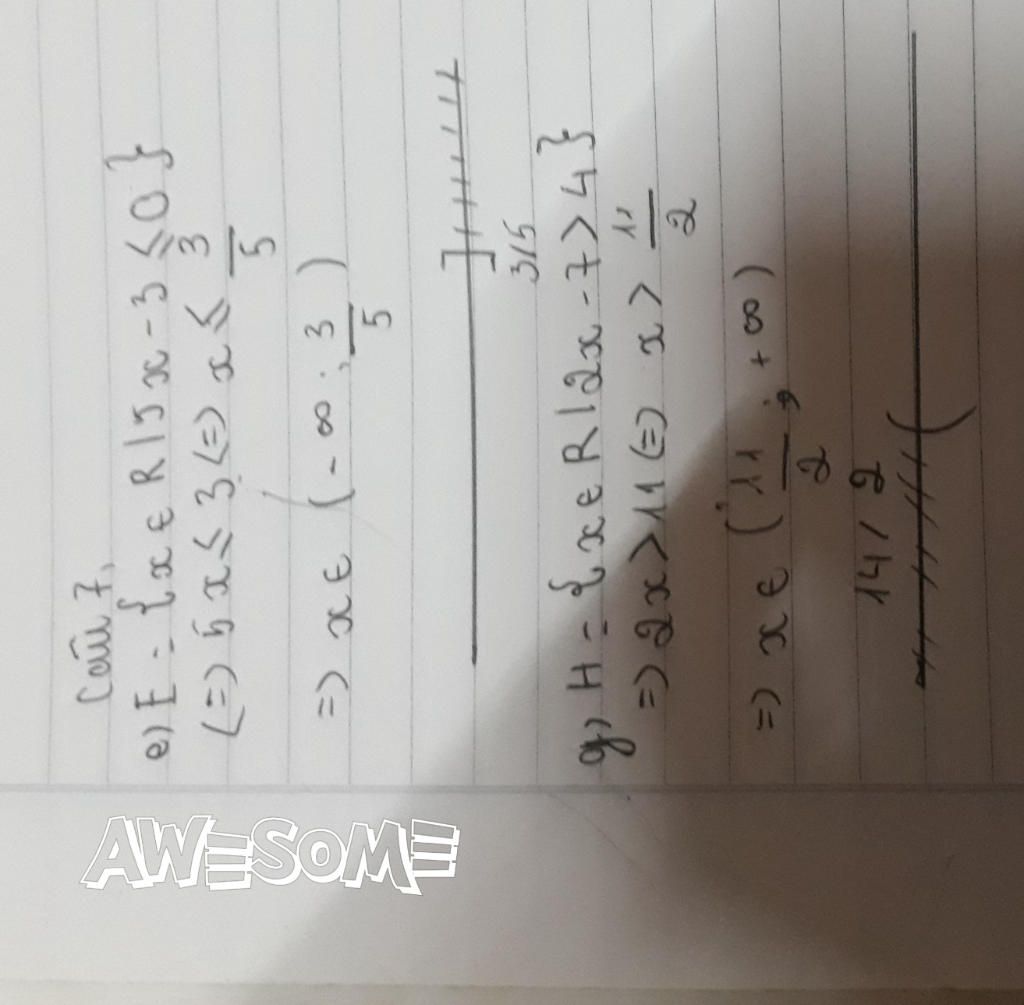 Câu 7,
e) E = {x ∈ R | 5x - 3 ≤ 0}
(=) 5x ≤ 3 (=) x ≤ 3/5
=) x ∈ (-∞ ; 3/5)
]
3/5
g) H = {x ∈ R | 2x - 7 > 4}
=) 2x > 11 (=) x > 11/2
=) x ∈ (11/2 ; +∞)
14/2
(
AWESOME